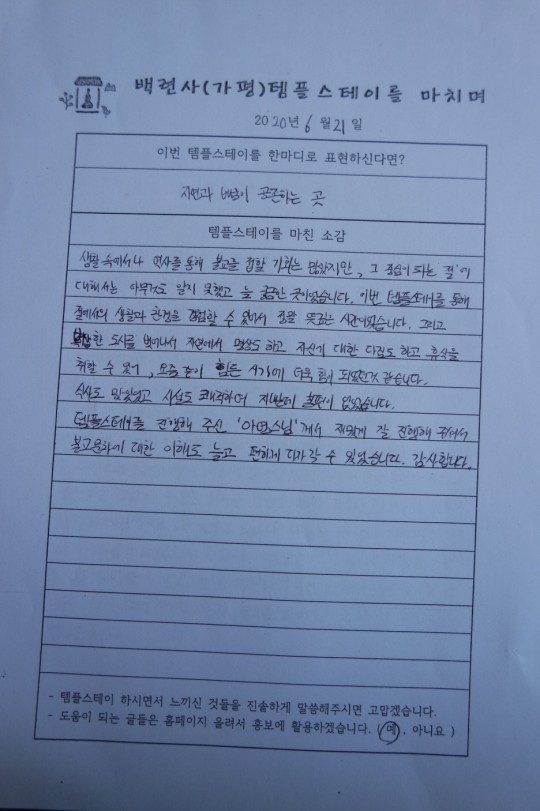 백련사(가평)템플스테이를 마치며
2020년 6월 21일
이번 템플스테이를 한마디로 표현하신다면?
자연과 내가 공존하는 곳
템플스테이를 마친 소감
생활 속에서나 역사를 통해 불교를 접할 기회는 많았지만, 그 중심이 되는 '절'에
대해서는 아무것도 알지 못했고 늘 궁금한 곳이었습니다. 이번 템플스테이를 통해
절에서의 생활과 환경을 경험할 수 있어서 정말 뜻깊은 시간이었습니다. 그리고
복잡한 도시를 벗어나서 자연에서 명상도 하고 자신에 대한 다짐도 하고 휴식을
취할 수 있어, 요즘 같이 힘든 시기에 더욱 힘이 되었던것 같습니다.
식사도 맛있었고 시설도 쾌적하여 지내는데 불편이 없었습니다.
템플스테이를 진행해 주신 '아명스님'께서 재밌게 잘 진행해 주셔서
불교문화에 대한 이해도 늘고 편하게 다가갈 수 있었습니다. 감사합니다.
- 템플스테이 하시면서 느끼신 것들을 진솔하게 말씀해주시면 고맙겠습니다.
- 도움이 되는 글들은 홈페이지 올려서 홍보에 활용하겠습니다. ( 예 , 아니요 )